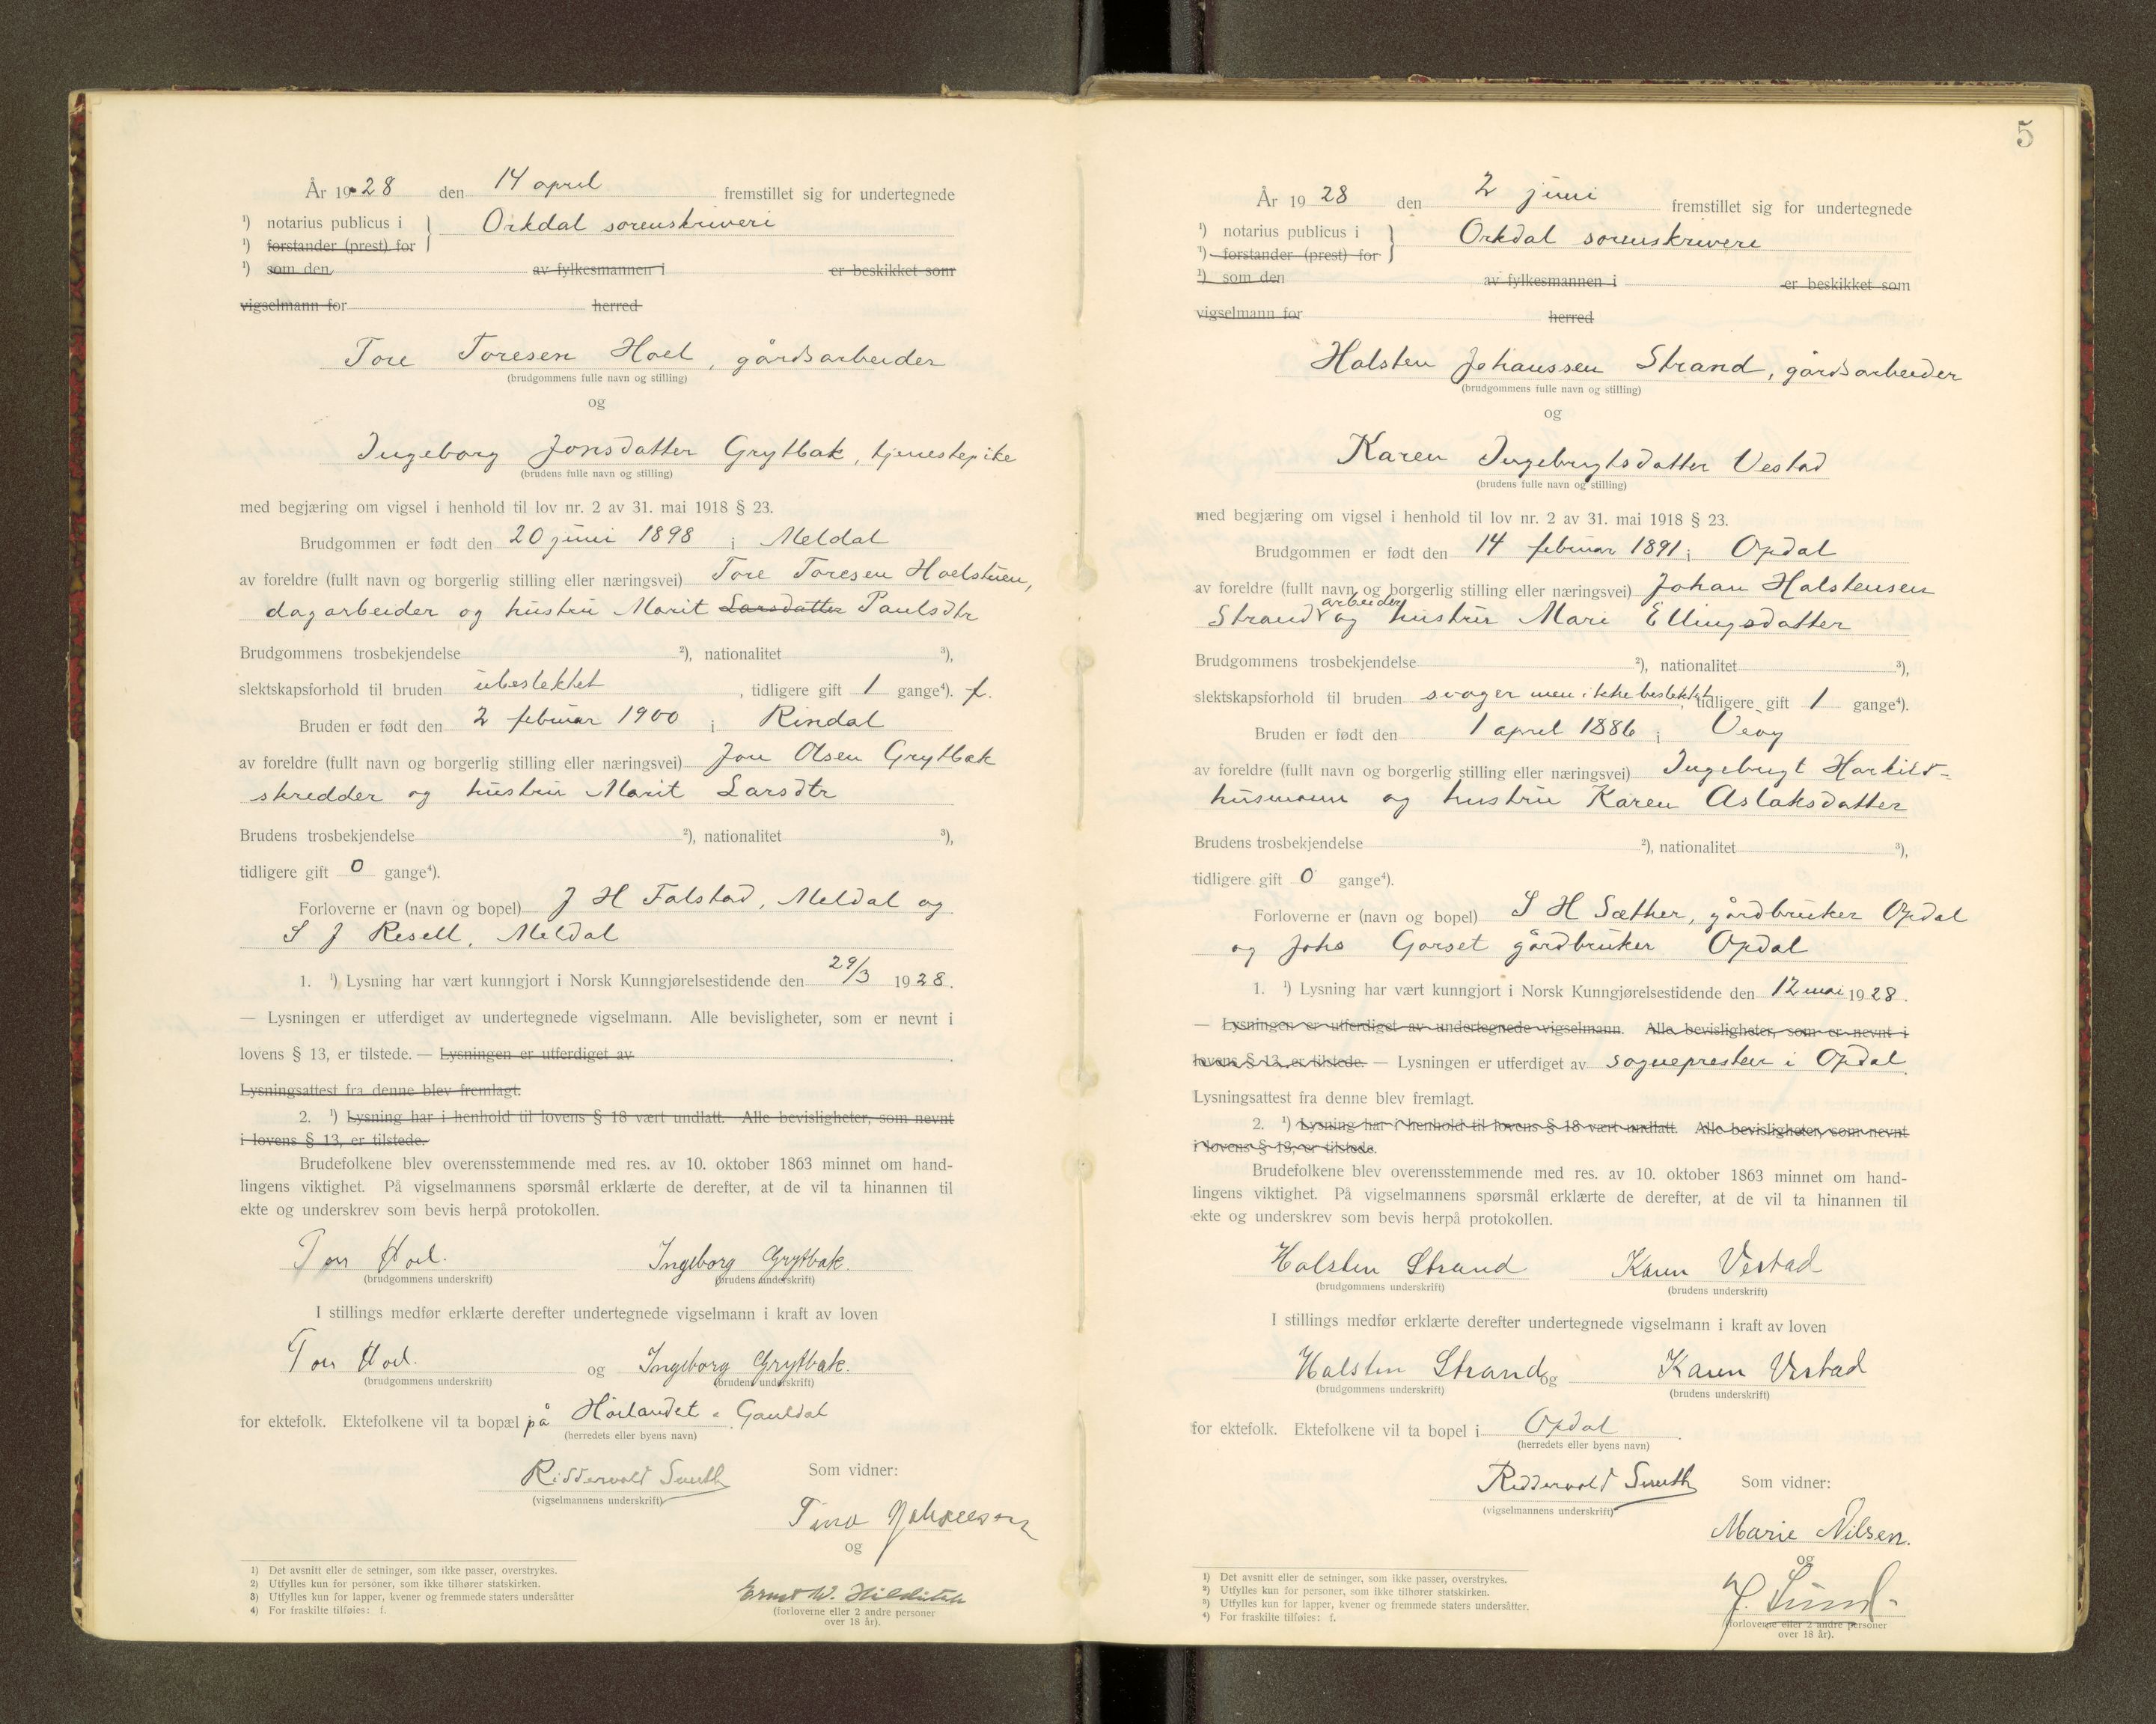 År 1928 den 14 april fremstillet sig for undertegnede
¹) notarius publicus i } Orkdal sorenskriveri
¹) forstander (prest) for
¹) som den av fylkesmannen i er beskikket som
vigselmann for herred
Tore Toresen Hoel, gårdsarbeider
(brudgommens fulle navn og stilling)
og
Ingeborg Jonsdatter Grytbak, tjenestepike
(brudens fulle navn og stilling)
med begjæring om vigsel i henhold til lov nr. 2 av 31. mai 1918 § 23.
Brudgommen er født den 20 juni 1898 i Meldal
av foreldre (fullt navn og borgerlig stilling eller næringsvei) Tore Toresen Hoelstuen,
dagarbeider og hustru Marit Larsdatter Paulsdtr
Brudgommens trosbekjendelse ²), nationalitet ³),
slektskapsforhold til bruden ubeslektet, tidligere gift 1 gange⁴). f.
Bruden er født den 2 februar 1900 i Rindal
av foreldre (fullt navn og borgerlig stilling eller næringsvei) Jon Olsen Grytbak
skredder og hustru Marit Larsdtr
Brudens trosbekjendelse ²), nationalitet ³),
tidligere gift 0 gange⁴).
Forloverne er (navn og bopel) J H Falstad, Meldal og
S J Resell, Meldal
1. ¹) Lysning har vært kunngjort i Norsk Kunngjørelsestidende den 29/3 1928.
— Lysningen er utferdiget av undertegnede vigselmann. Alle bevisligheter, som er nevnt i
lovens § 13, er tilstede. — Lysningen er utferdiget av .
Lysningsattest fra denne blev fremlagt.
2. ¹) Lysning har i henhold til lovens § 18 vært undlatt. Alle bevisligheter, som nevnt
i lovens § 13, er tilstede.
Brudefolkene blev overensstemmende med res. av 10. oktober 1863 minnet om hand-
lingens viktighet. På vigselmannens spørsmål erklærte de derefter, at de vil ta hinannen til
ekte og underskrev som bevis herpå protokollen.
Tore Hoel. Ingeborg Grytbak.
(brudgommens underskrift) (brudens underskrift)
I stillings medfør erklærte derefter undertegnede vigselmann i kraft av loven
Tore Hoel. og Ingeborg Grytbak.
(brudgommens underskrift) (brudens underskrift)
for ektefolk. Ektefolkene vil ta bopæl på Hølandet, Gauldal
(herredets eller byens navn)
Riddervold Smith Som vidner:
(vigselmannens underskrift)
Tina
og
Ernst W.
(forloverne eller 2 andre personer
over 18 år).
1) Det avsnitt eller de setninger, som ikke passer, overstrykes.
2) Utfylles kun for personer, som ikke tilhører statskirken.
3) Utfylles kun for lapper, kvener og fremmede staters undersåtter
4) For fraskilte tilføies: f.
5
År 1928 den 2 juni fremstillet sig for undertegnede
¹) notarius publicus i } Orkdal sorenskriveri
¹) forstander (prest) for
¹) som den av fylkesmannen i er beskikket som
vigselmann for herred
Halsten Johanssen Strand, gårdsarbeider
(brudgommens fulle navn og stilling)
og
Karen Ingebrigtsdatter Vestad
(brudens fulle navn og stilling)
med begjæring om vigsel i henhold til lov nr. 2 av 31. mai 1918 § 23.
Brudgommen er født den 14 februar 1891 i Opdal
av foreldre (fullt navn og borgerlig stilling eller næringsvei) Johan Halstensen
Strand arbeider og hustru Mari Ellingsdatter
Brudgommens trosbekjendelse ²), nationalitet ³),
slektskapsforhold til bruden svoger men ikke beslektet, tidligere gift 1 gange⁴).
Bruden er født den 1 april 1886 i Veøy
av foreldre (fullt navn og borgerlig stilling eller næringsvei) Ingebrigt Harkild-
husmann og hustru Karen Aslaksdatter
Brudens trosbekjendelse ²), nationalitet ³),
tidligere gift 0 gange⁴).
Forloverne er (navn og bopel) S H Sæther, gårdbruker Opdal
og Johs Gorset gårdbruker Opdal
1. ¹) Lysning har vært kunngjort i Norsk Kunngjørelsestidende den 12 mai 1928.
— Lysningen er utferdiget av undertegnede vigselmann. Alle bevisligheter, som er nevnt i
lovens § 13, er tilstede. — Lysningen er utferdiget av sognepresten i Opdal.
Lysningsattest fra denne blev fremlagt.
2. ¹) Lysning har i henhold til lovens § 18 vært undlatt. Alle bevisligheter, som nevnt
i lovens § 13, er tilstede.
Brudefolkene blev overensstemmende med res. av 10. oktober 1863 minnet om hand-
lingens viktighet. På vigselmannens spørsmål erklærte de derefter, at de vil ta hinannen til
ekte og underskrev som bevis herpå protokollen.
Halsten Strand Karen Vestad
(brudgommens underskrift) (brudens underskrift)
I stillings medfør erklærte derefter undertegnede vigselmann i kraft av loven
Halsten Strand og Karen Vestad
(brudgommens underskrift) (brudens underskrift)
for ektefolk. Ektefolkene vil ta bopel i Opdal.
(herredets eller byens navn)
Riddervold Smith Som vidner:
(vigselmannens underskrift)
Marie Nilsen.
og
J. Sund
(forloverne eller 2 andre personer
over 18 år).
1) Det avsnitt eller de setninger, som ikke passer, overstrykes.
²) Utfylles kun for personer, som ikke tilhører statskirken.
³) Utfylles kun for lapper, kvener og fremmede staters undersåtter.
⁴) For fraskilte tilføies: f.